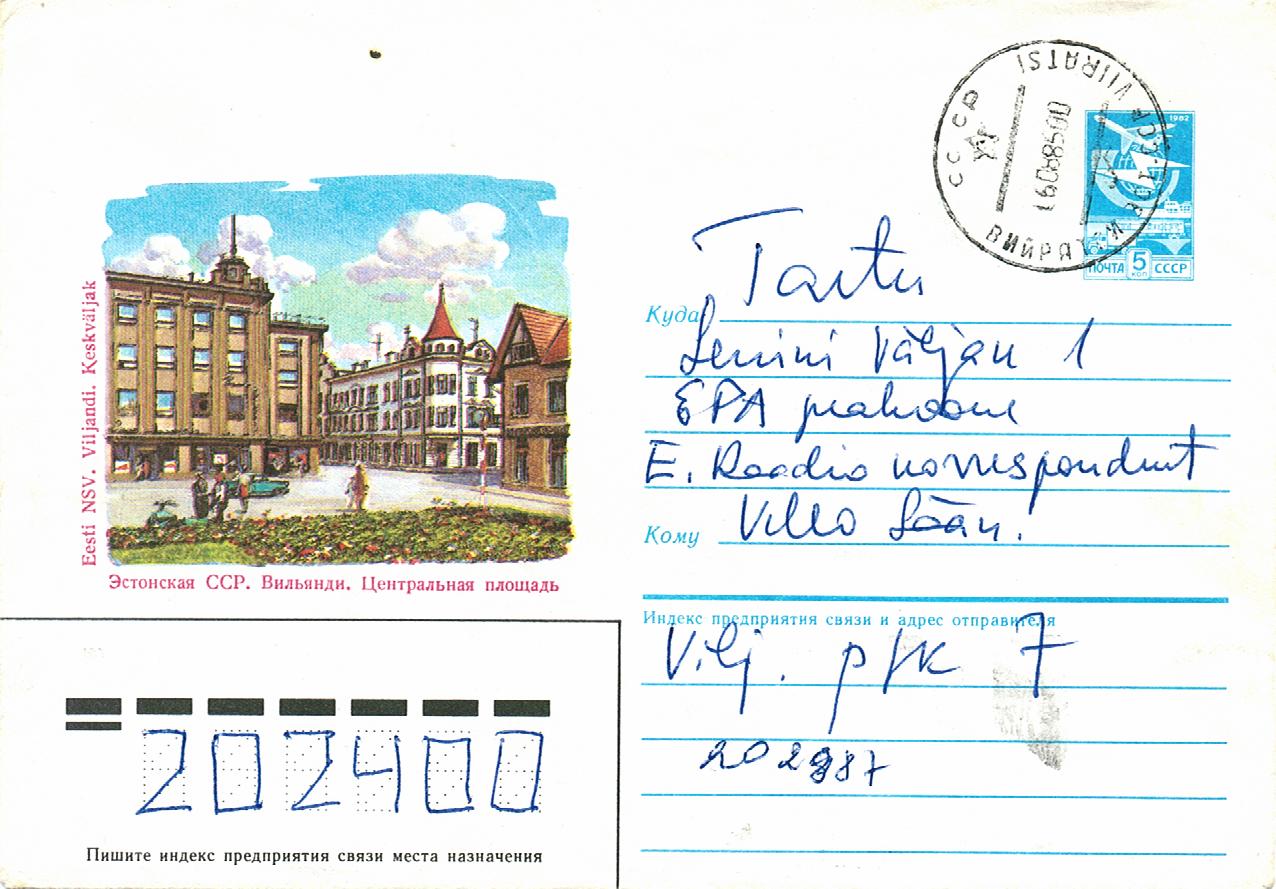 СССР
VIIRATSI
160885 00
ВИЙРАТСИ
1982
ПОЧТА 5 КОП СССР
Eesti NSV. Viljandi. Keskväljak
Эстонская ССР. Вильянди. Центральная площадь
Куда Tartu
Lenini väljan 1
EPA peahoone
E. Raadio korrespondent
Кому Villo Sään.
Индекс предприятия связи и адрес отправителя
Vilj. p/k 7
202987
202400
Пишите индекс предприятия связи места назначения